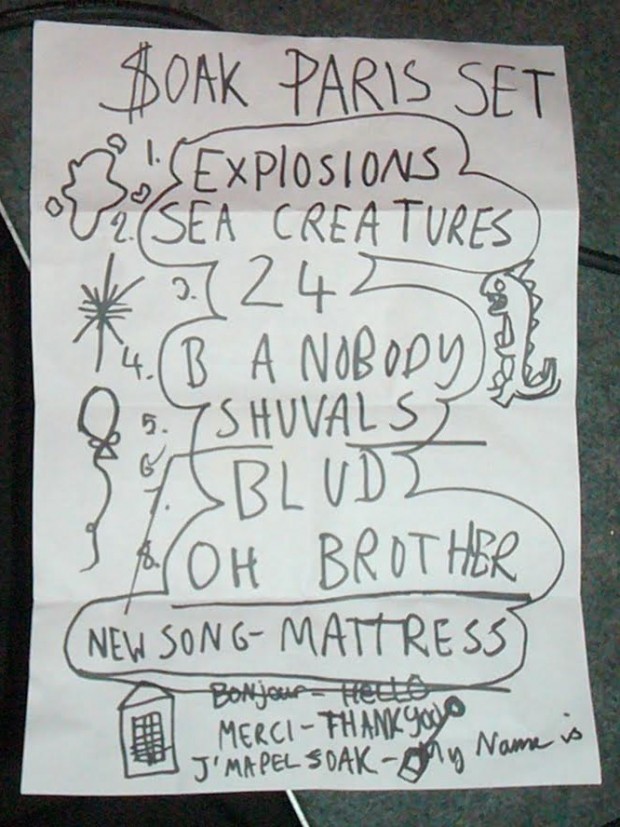 $OAK PARIS SET
1. EXPLOSIONS
2. SEA CREATURES
3. 24
4. B A NOBODY
5. SHUVALS
6. BLUD
8. OH BROTHER
NEW SONG- MATTRESS
BONjour- HELLO
MERCI- THANKYOU
J'MAPEL SOAK- My Name is